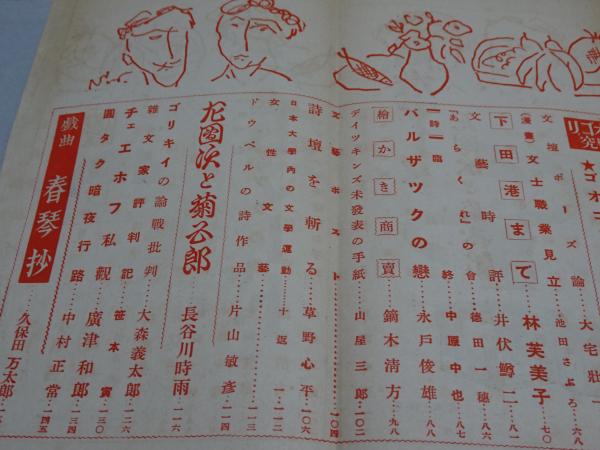 リゴ
★ゴオゴ
文壇ポーズ論 大宅壯一
(漫畫)文士職業見立 池田さぶろ 六八
下田港まで 林芙美子 七〇
文藝時評 井伏鱒二 八一
『あらくれ』の會 德田一穗 八六
『詩』臨終 中原中也 八七
バルザツクの戀 永戸俊雄 八八
繪かき商賣 鏑木淸方 九八
デイツキンズ未發表の手紙 山屋三郎 一〇二
文藝ポスト 一〇四
詩壇を斬る 草野心平 一〇六
日本大學內の文學運動 十返一 一一二
女性文藝 一一三
ドゥベルの詩作品 片山敏彥 一一四
九團次と菊五郎 長谷川時雨 一一六
ゴリキイの論戰批判 大森義太郎 一二六
雜文家評判記 笹本寅
チェエホフ私觀 廣津和郎 一三〇
圓タク暗夜行路 中村正常 一四五
戲曲 春琴抄 久保田万太郎